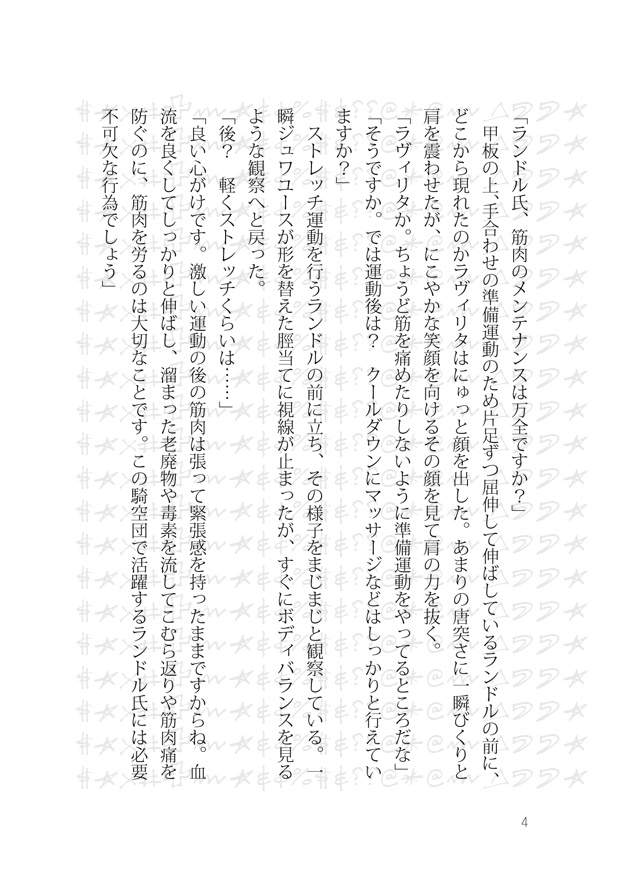 「ランドル氏、筋肉のメンテナンスは万全ですか？」
　甲板の上、手合わせの準備運動のため片足ずつ屈伸して伸ばしているランドルの前に、
どこから現れたのかラヴィリタはにゅっと顔を出した。あまりの唐突さに一瞬びくりと
肩を震わせたが、にこやかな笑顔を向けるその顔を見て肩の力を抜く。
「ラヴィリタか。ちょうど筋を痛めたりしないように準備運動をやってるところだな」
「そうですか。では運動後は？　クールダウンにマッサージなどはしっかりと行えてい
ますか？」
　ストレッチ運動を行うランドルの前に立ち、その様子をまじまじと観察している。一
瞬ジュワユースが形を替えた脛当てに視線が止まったが、すぐにボディバランスを見る
ような観察へと戻った。
「後？　軽くストレッチくらいは……」
「良い心がけです。激しい運動の後の筋肉は張って緊張感を持ったままですからね。血
流を良くしてしっかりと伸ばし、溜まった老廃物や毒素を流してこむら返りや筋肉痛を
防ぐのに、筋肉を労るのは大切なことです。この騎空団で活躍するランドル氏には必要
不可欠な行為でしょう」
4